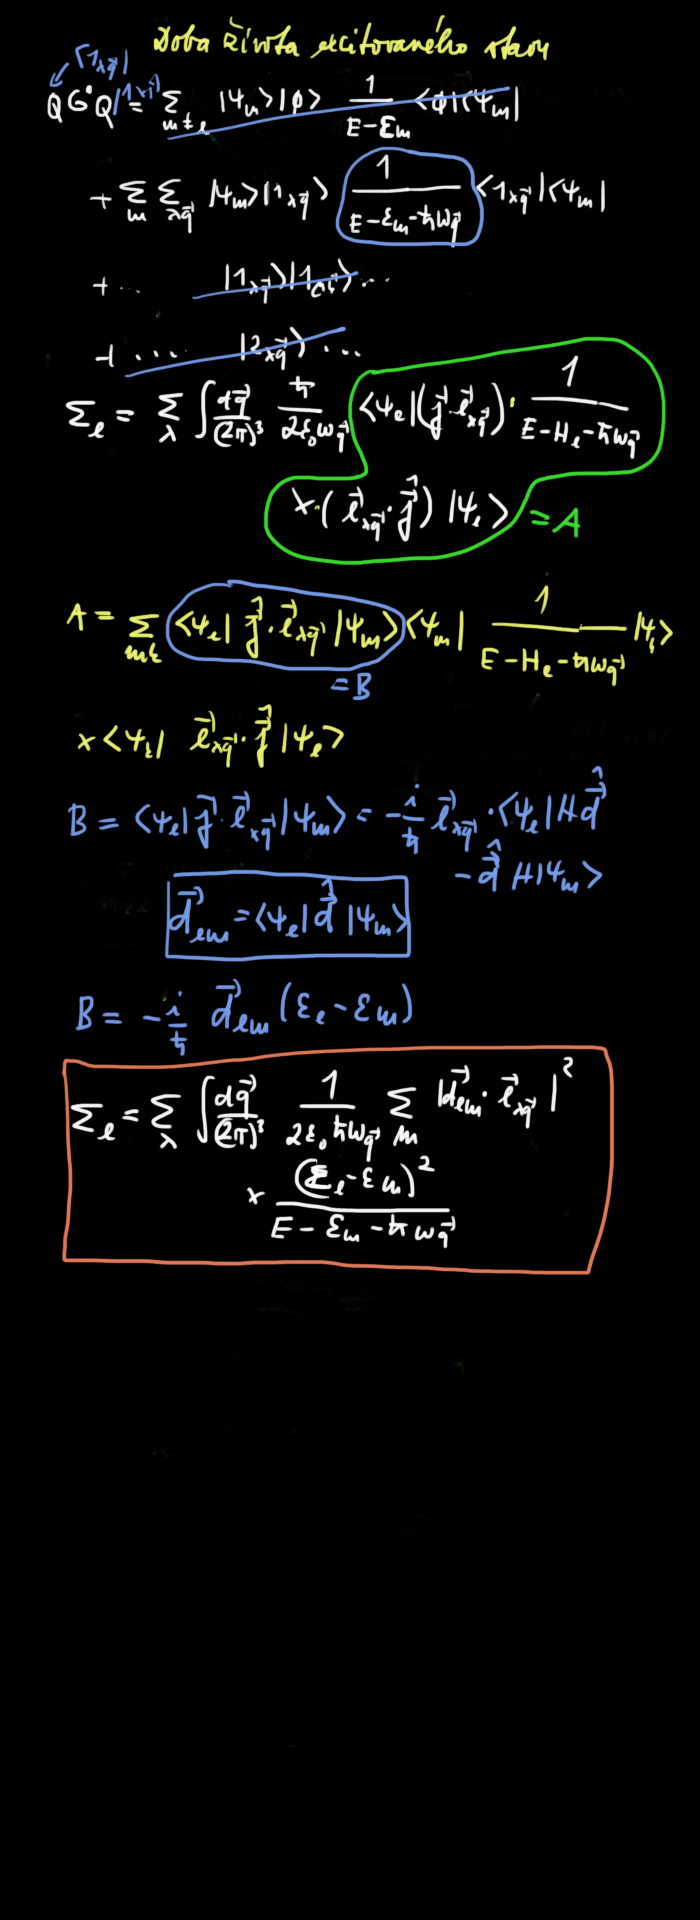 Doba života excitovaného stavu
⟨1_{λq⃗}|
QG°Q|1_{λq⃗}⟩ = Σ_{m≠e} |Ψ_m⟩|ϕ⟩ 1/(E-ε_m) ⟨ϕ|⟨Ψ_m|
+ Σ_m Σ_{λq⃗} |Ψ_m⟩|1_{λq⃗}⟩ 1/(E-ε_m-ħω_{q⃗}) ⟨1_{λq⃗}|⟨Ψ_m|
+ ... |1_{λq⃗}⟩|1⟩ ...
+ .... |2_{λq⃗}⟩ ...
Σ_e = Σ_λ ∫ dq⃗/(2π)³ ħ/(2ε₀ω_{q⃗}) ⟨Ψ_e|(ĵ⃗·e⃗_{λq⃗}) · 1/(E-H_e-ħω_{q⃗})
×·(e⃗_{λq⃗}·ĵ⃗) |Ψ_e⟩ = A
A = Σ_{mk} ⟨Ψ_e| ĵ⃗·e⃗_{λq⃗} |Ψ_m⟩⟨Ψ_m| 1/(E-H_e-ħω_{q⃗}) |Ψ_k⟩
= B
×⟨Ψ_k| e⃗_{λq⃗}·ĵ⃗ |Ψ_e⟩
B = ⟨Ψ_e| j⃗·e⃗_{λq⃗} |Ψ_m⟩ = -i/ħ e⃗_{λq⃗}·⟨Ψ_e|H d̂⃗
- d̂⃗ H|Ψ_m⟩
d⃗_{em} = ⟨Ψ_e| d̂⃗ |Ψ_m⟩
B = -i/ħ d⃗_{em} (ε_e-ε_m)
Σ_e = Σ_λ ∫ dq⃗/(2π)³ 1/(2ε₀ħω_{q⃗}) Σ_m |d⃗_{em}·e⃗_{λq⃗}|²
× (ε_e-ε_m)²/(E-ε_m-ħω_{q⃗})